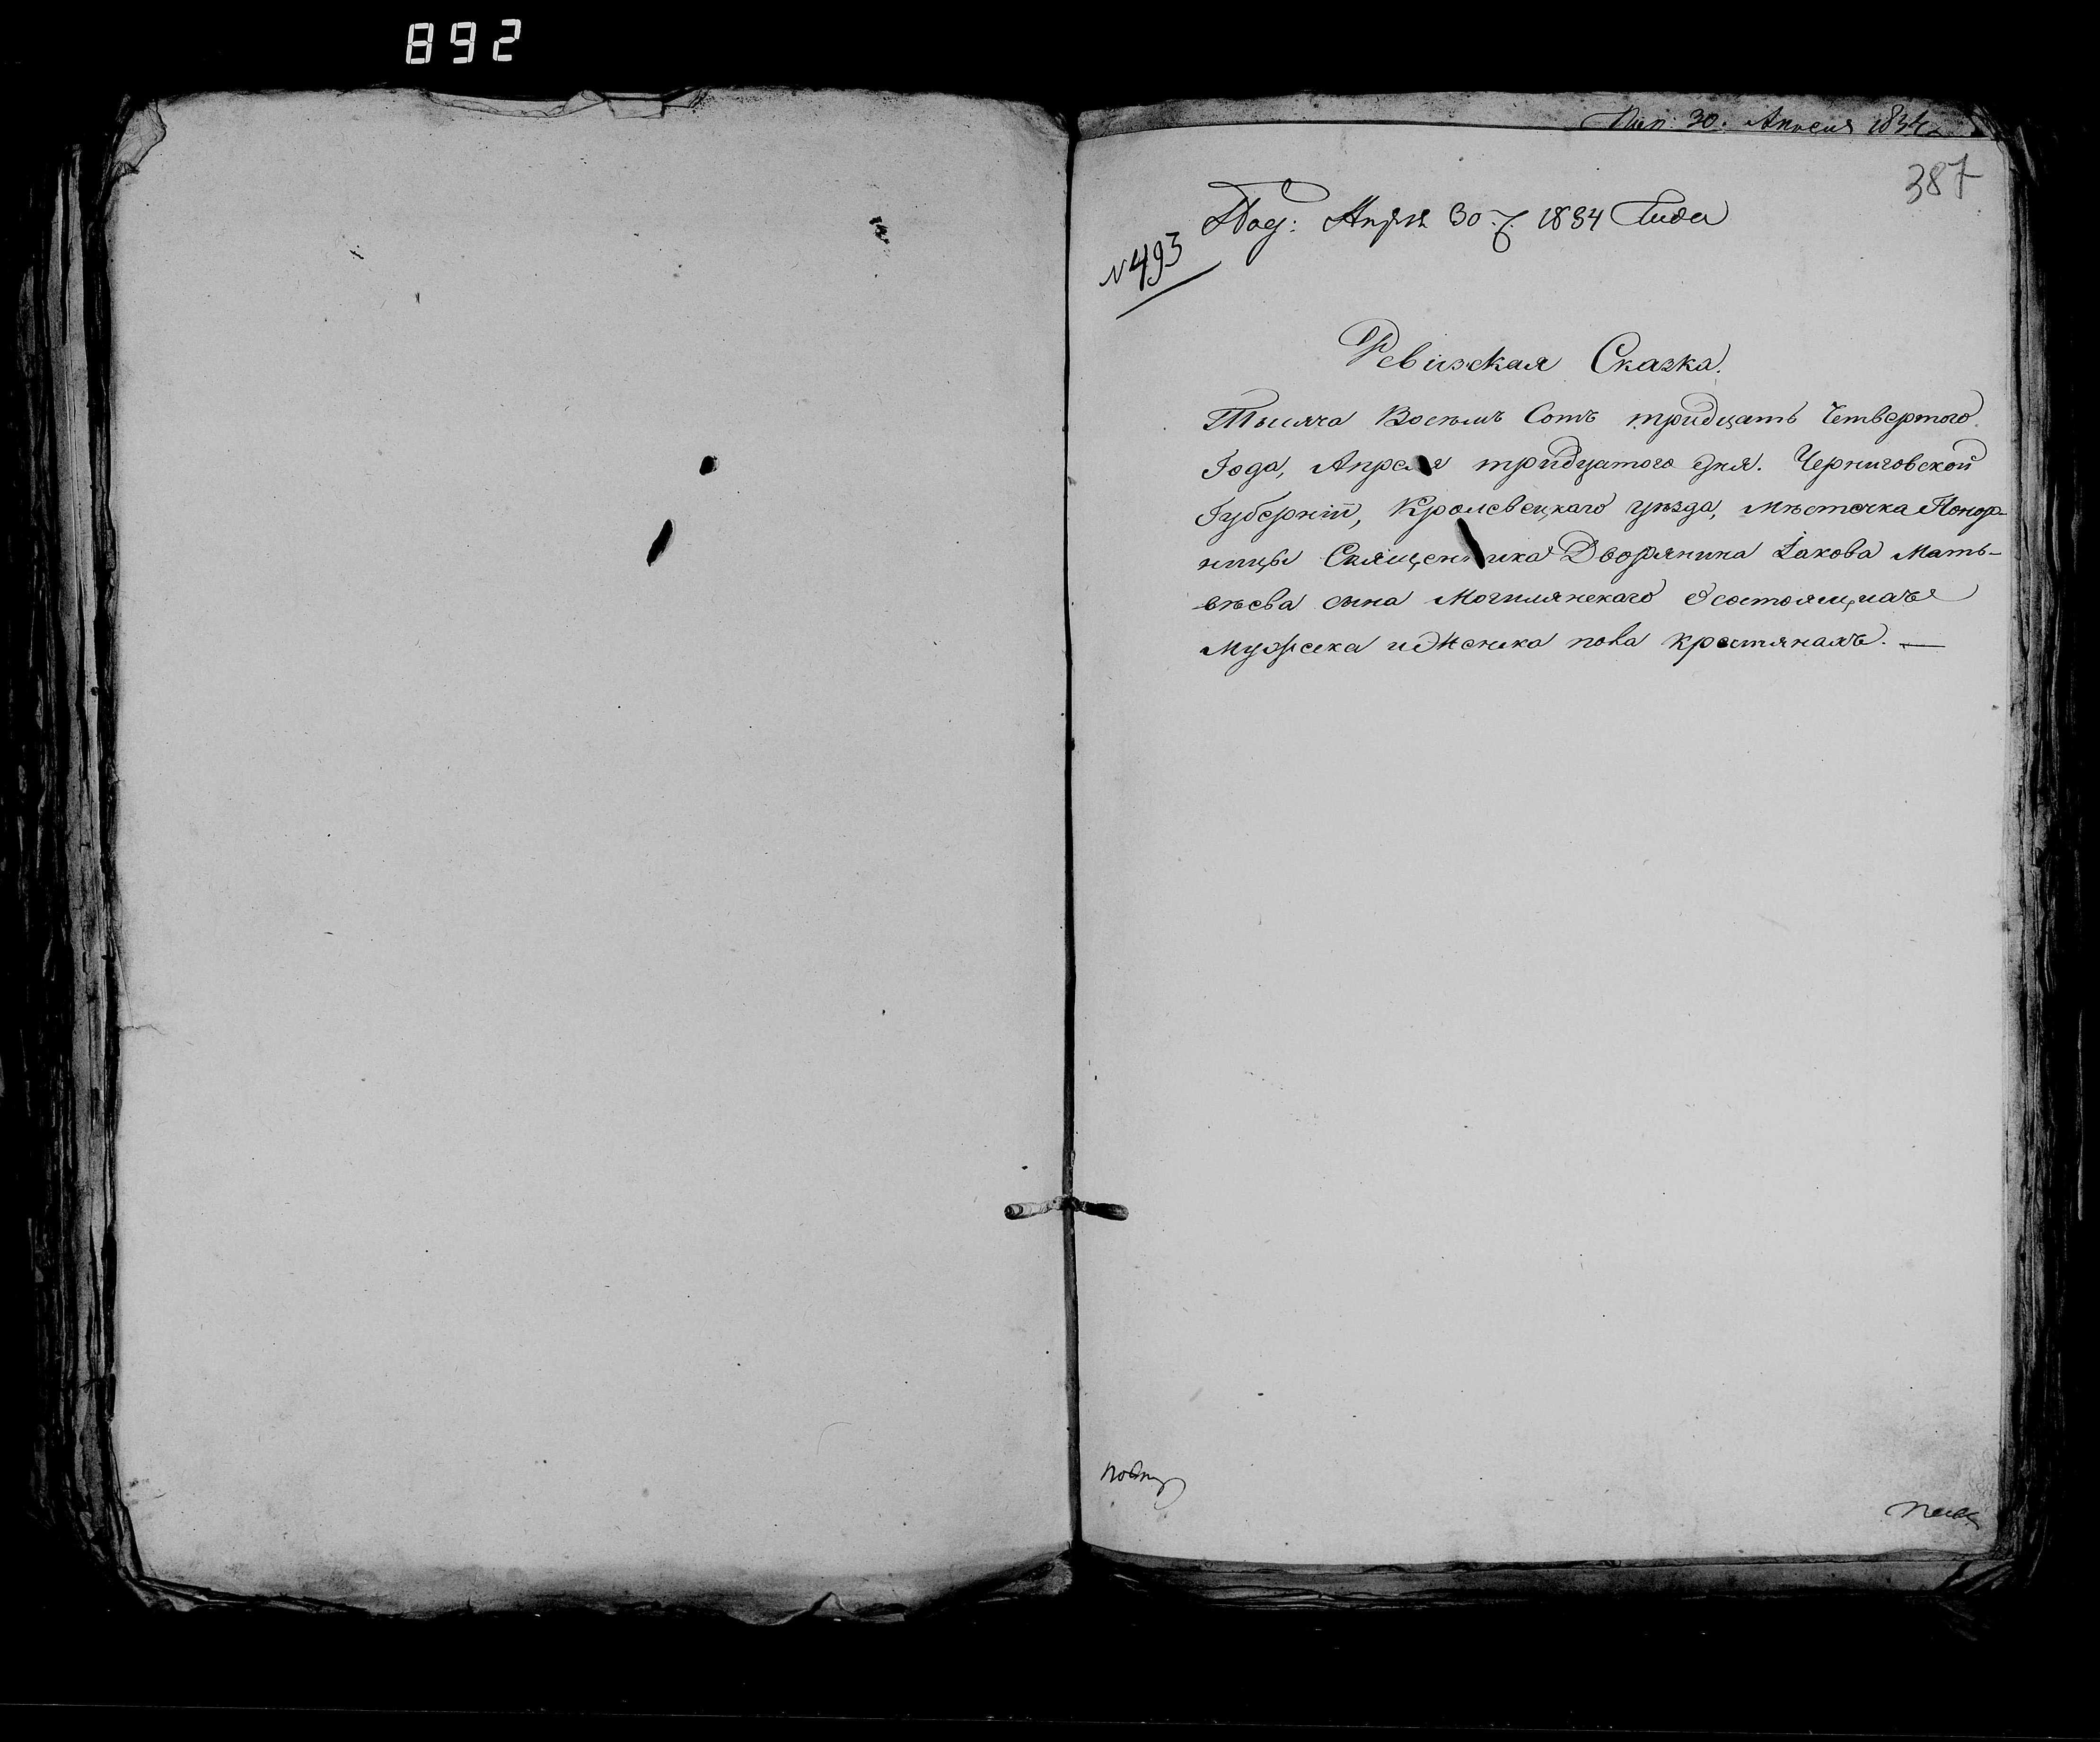 892
30. Апреля 1834
387
Под: Апрѣл 30. 1834 Года
№ 493
Ревизская Сказка.
Тысяча Восемъ Сотъ тридцать Четвертого
Года, Апреля тридцатого дня. Черниговской
Губерніи, Кролевецкаго уѣзда, мѣстечка Понор-
ницы Священника Дворянина Іакова Мать-
вѣева сына Могилянскаго Осостоящихъ
Мужска иЖенска пола крестянахъ. —